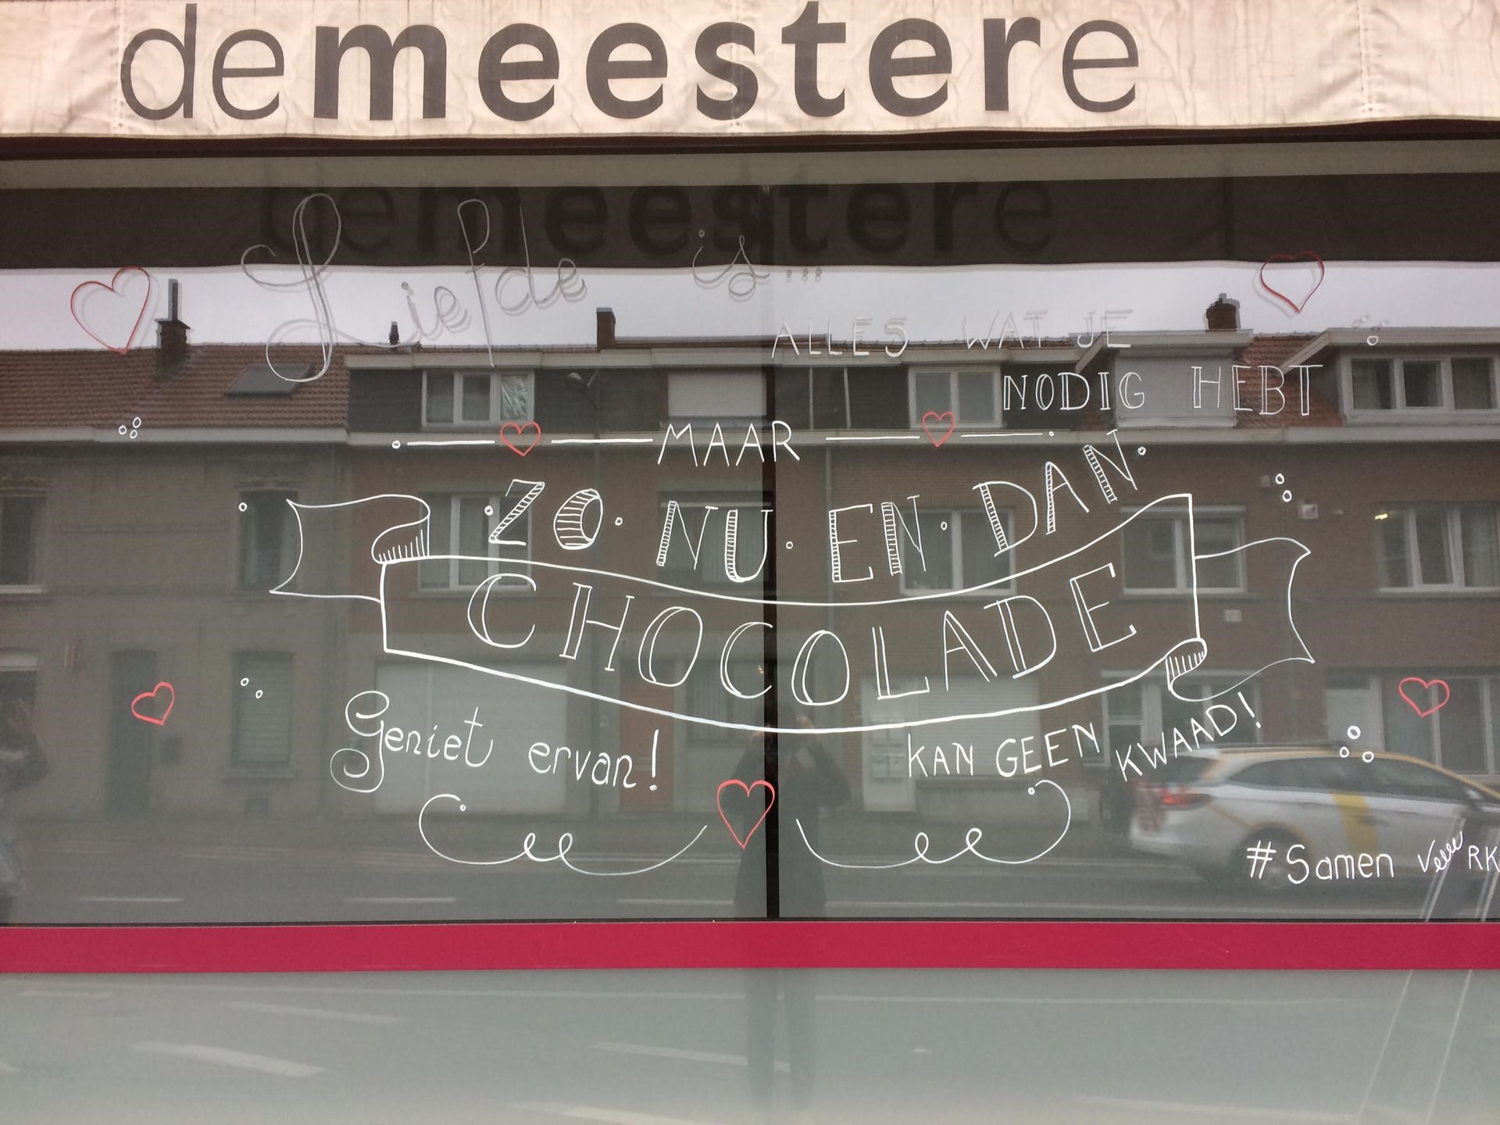 demeestere
demeestere
Liefde is...
ALLES WAT JE
NODIG HEBT
MAAR
ZO NU EN DAN
CHOCOLADE
Geniet ervan!
KAN GEEN KWAAD!
#Samen